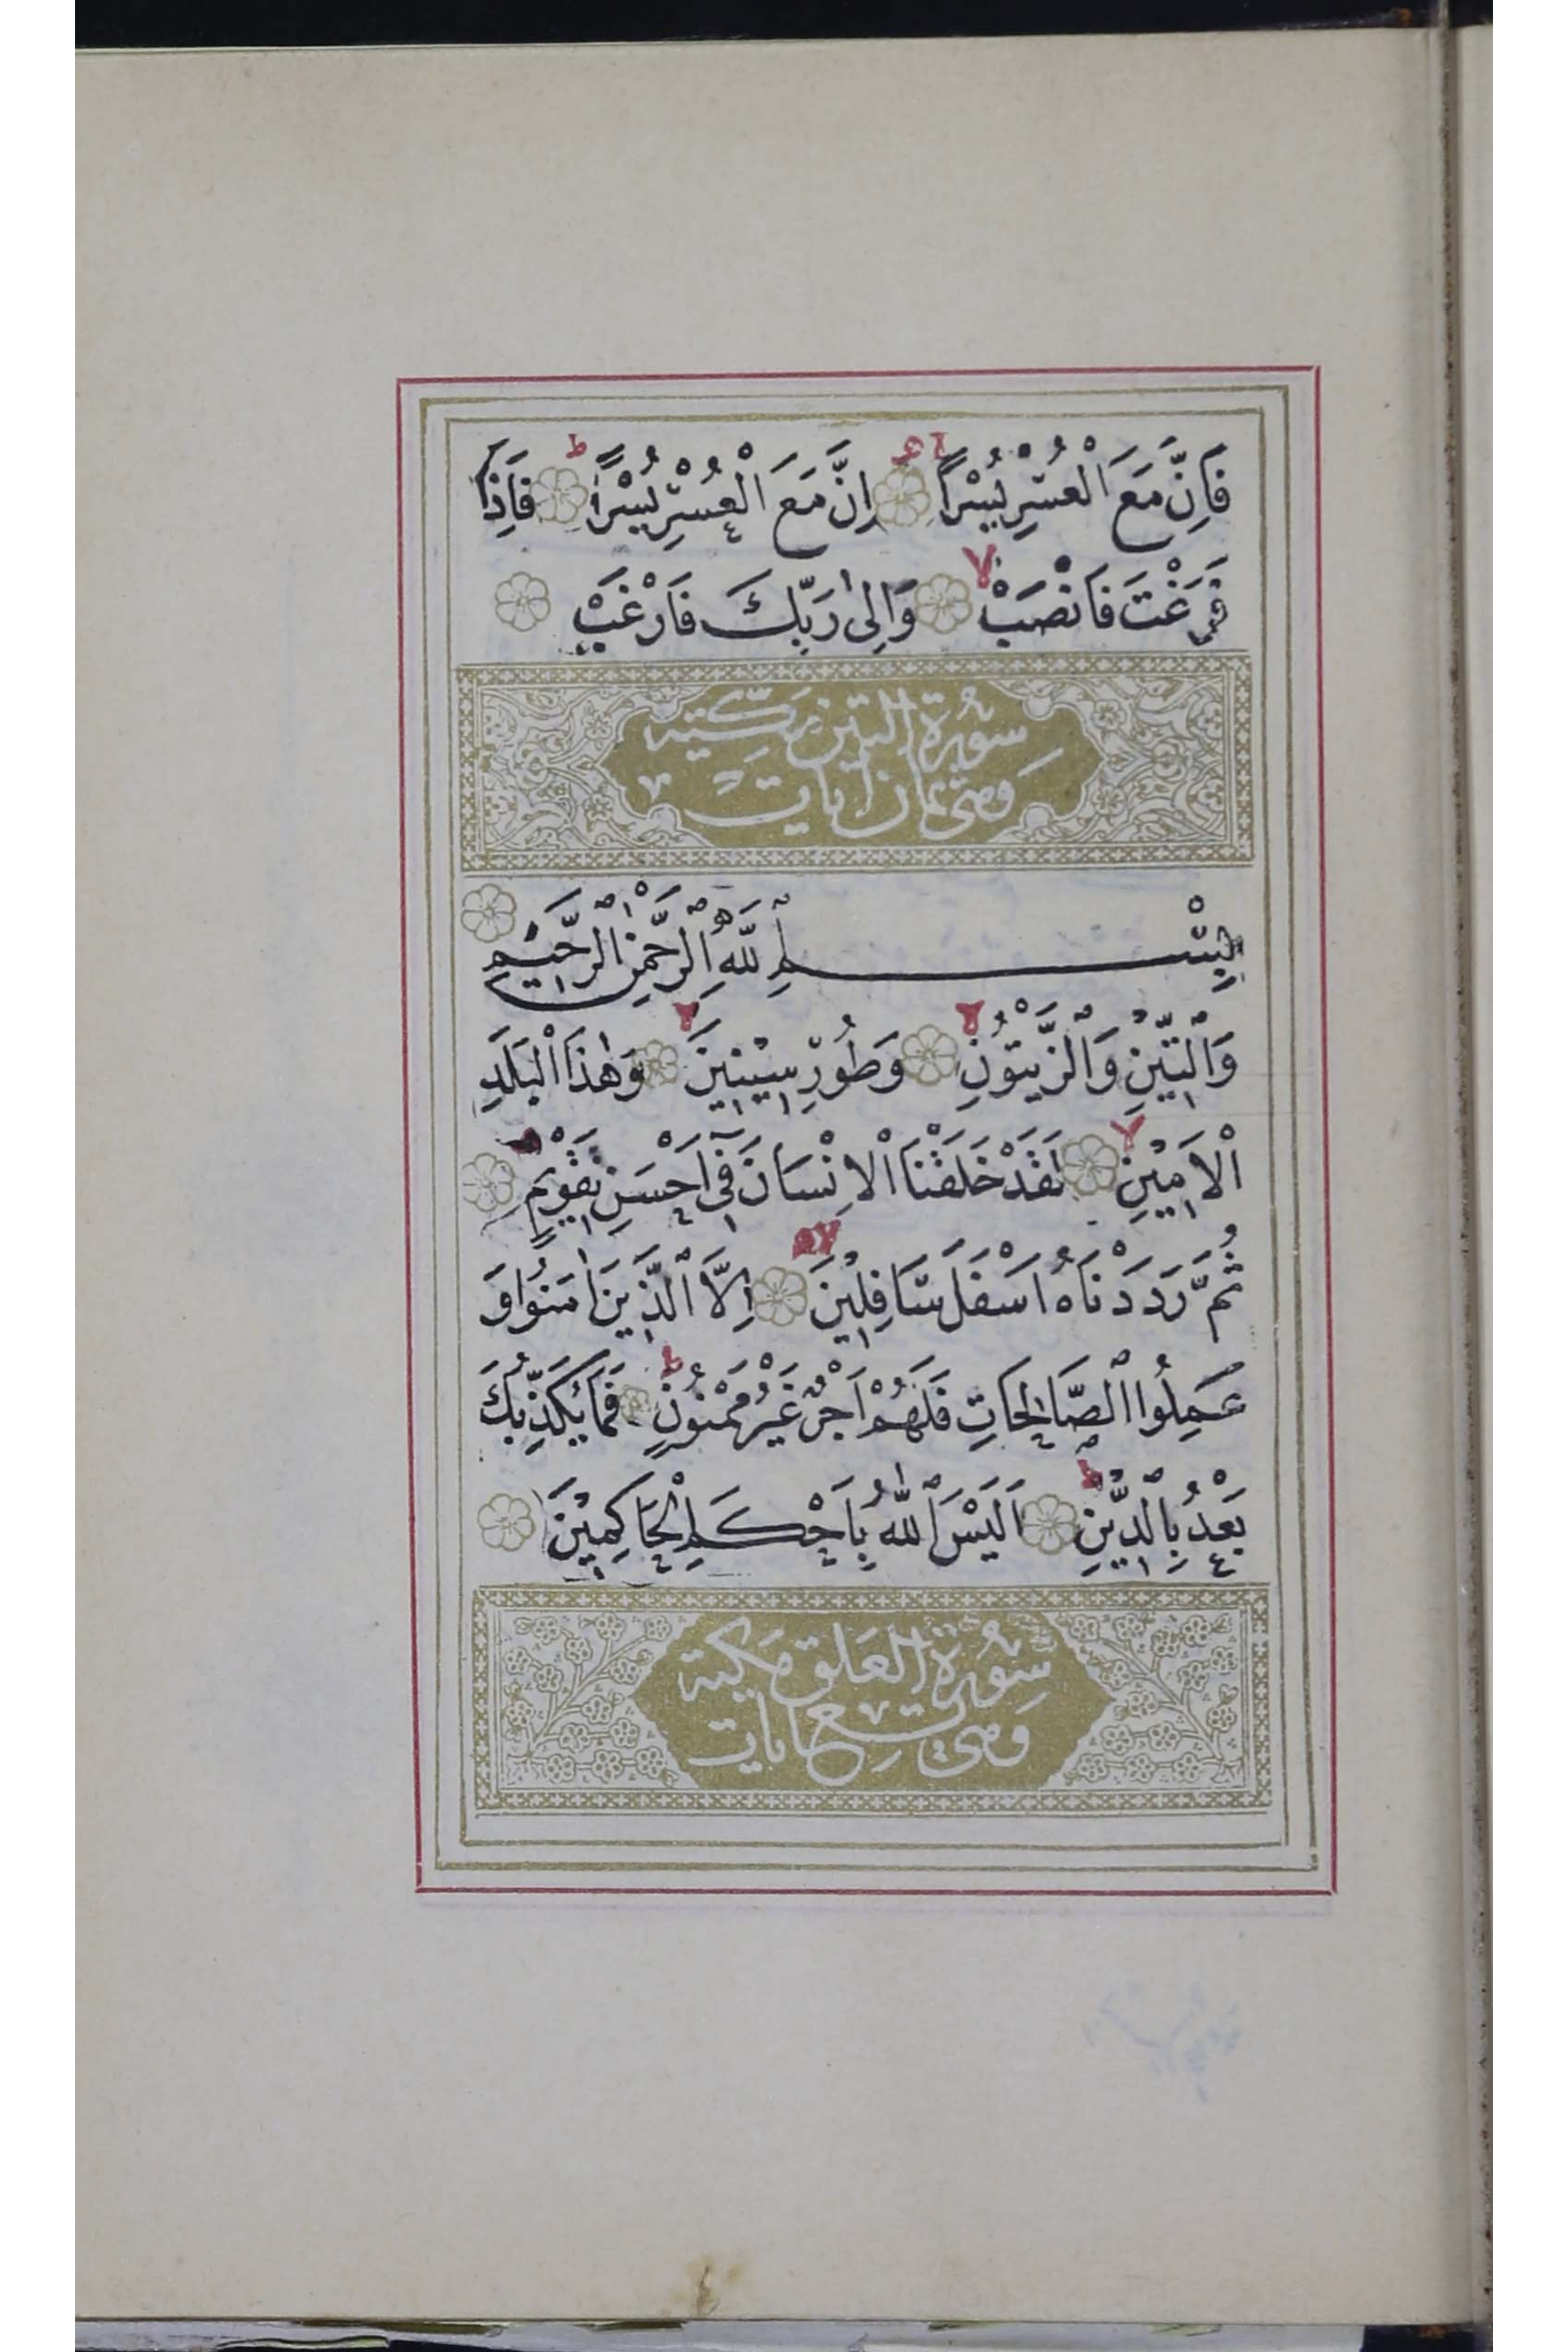 فَاِنَّ مَعَ الْعُسْرِ يُسْرًا اِنَّ مَعَ الْعُسْرِ يُسْرًا ط فَاِذَا
فَرَغْتَ فَانْصَبْ لا وَاِلٰى رَبِّكَ فَارْغَبْ
سُورَةُ التِّينِ مَكِّيَّة
وَهِيَ ثَمَانُ اٰيَات
بِسْمِ اللّٰهِ الرَّحْمٰنِ الرَّحِيمِ
وَالتِّينِ وَالزَّيْتُونِ لا وَطُورِ سِينِينَ لا وَهٰذَا الْبَلَدِ
الْاَمِينِ لا لَقَدْ خَلَقْنَا الْاِنْسَانَ فِي اَحْسَنِ تَقْوِيمٍ
ثُمَّ رَدَدْنَاهُ اَسْفَلَ سَافِلِينَ لا اِلَّا الَّذِينَ اٰمَنُوا وَ
عَمِلُوا الصَّالِحَاتِ فَلَهُمْ اَجْرٌ غَيْرُ مَمْنُونٍ ط فَمَا يُكَذِّبُكَ
بَعْدُ بِالدِّينِ ط اَلَيْسَ اللّٰهُ بِاَحْكَمِ الْحَاكِمِينَ
سُورَةُ الْعَلَقِ مَكِّيَّة
وَهِيَ تِسْعَ اٰيَات